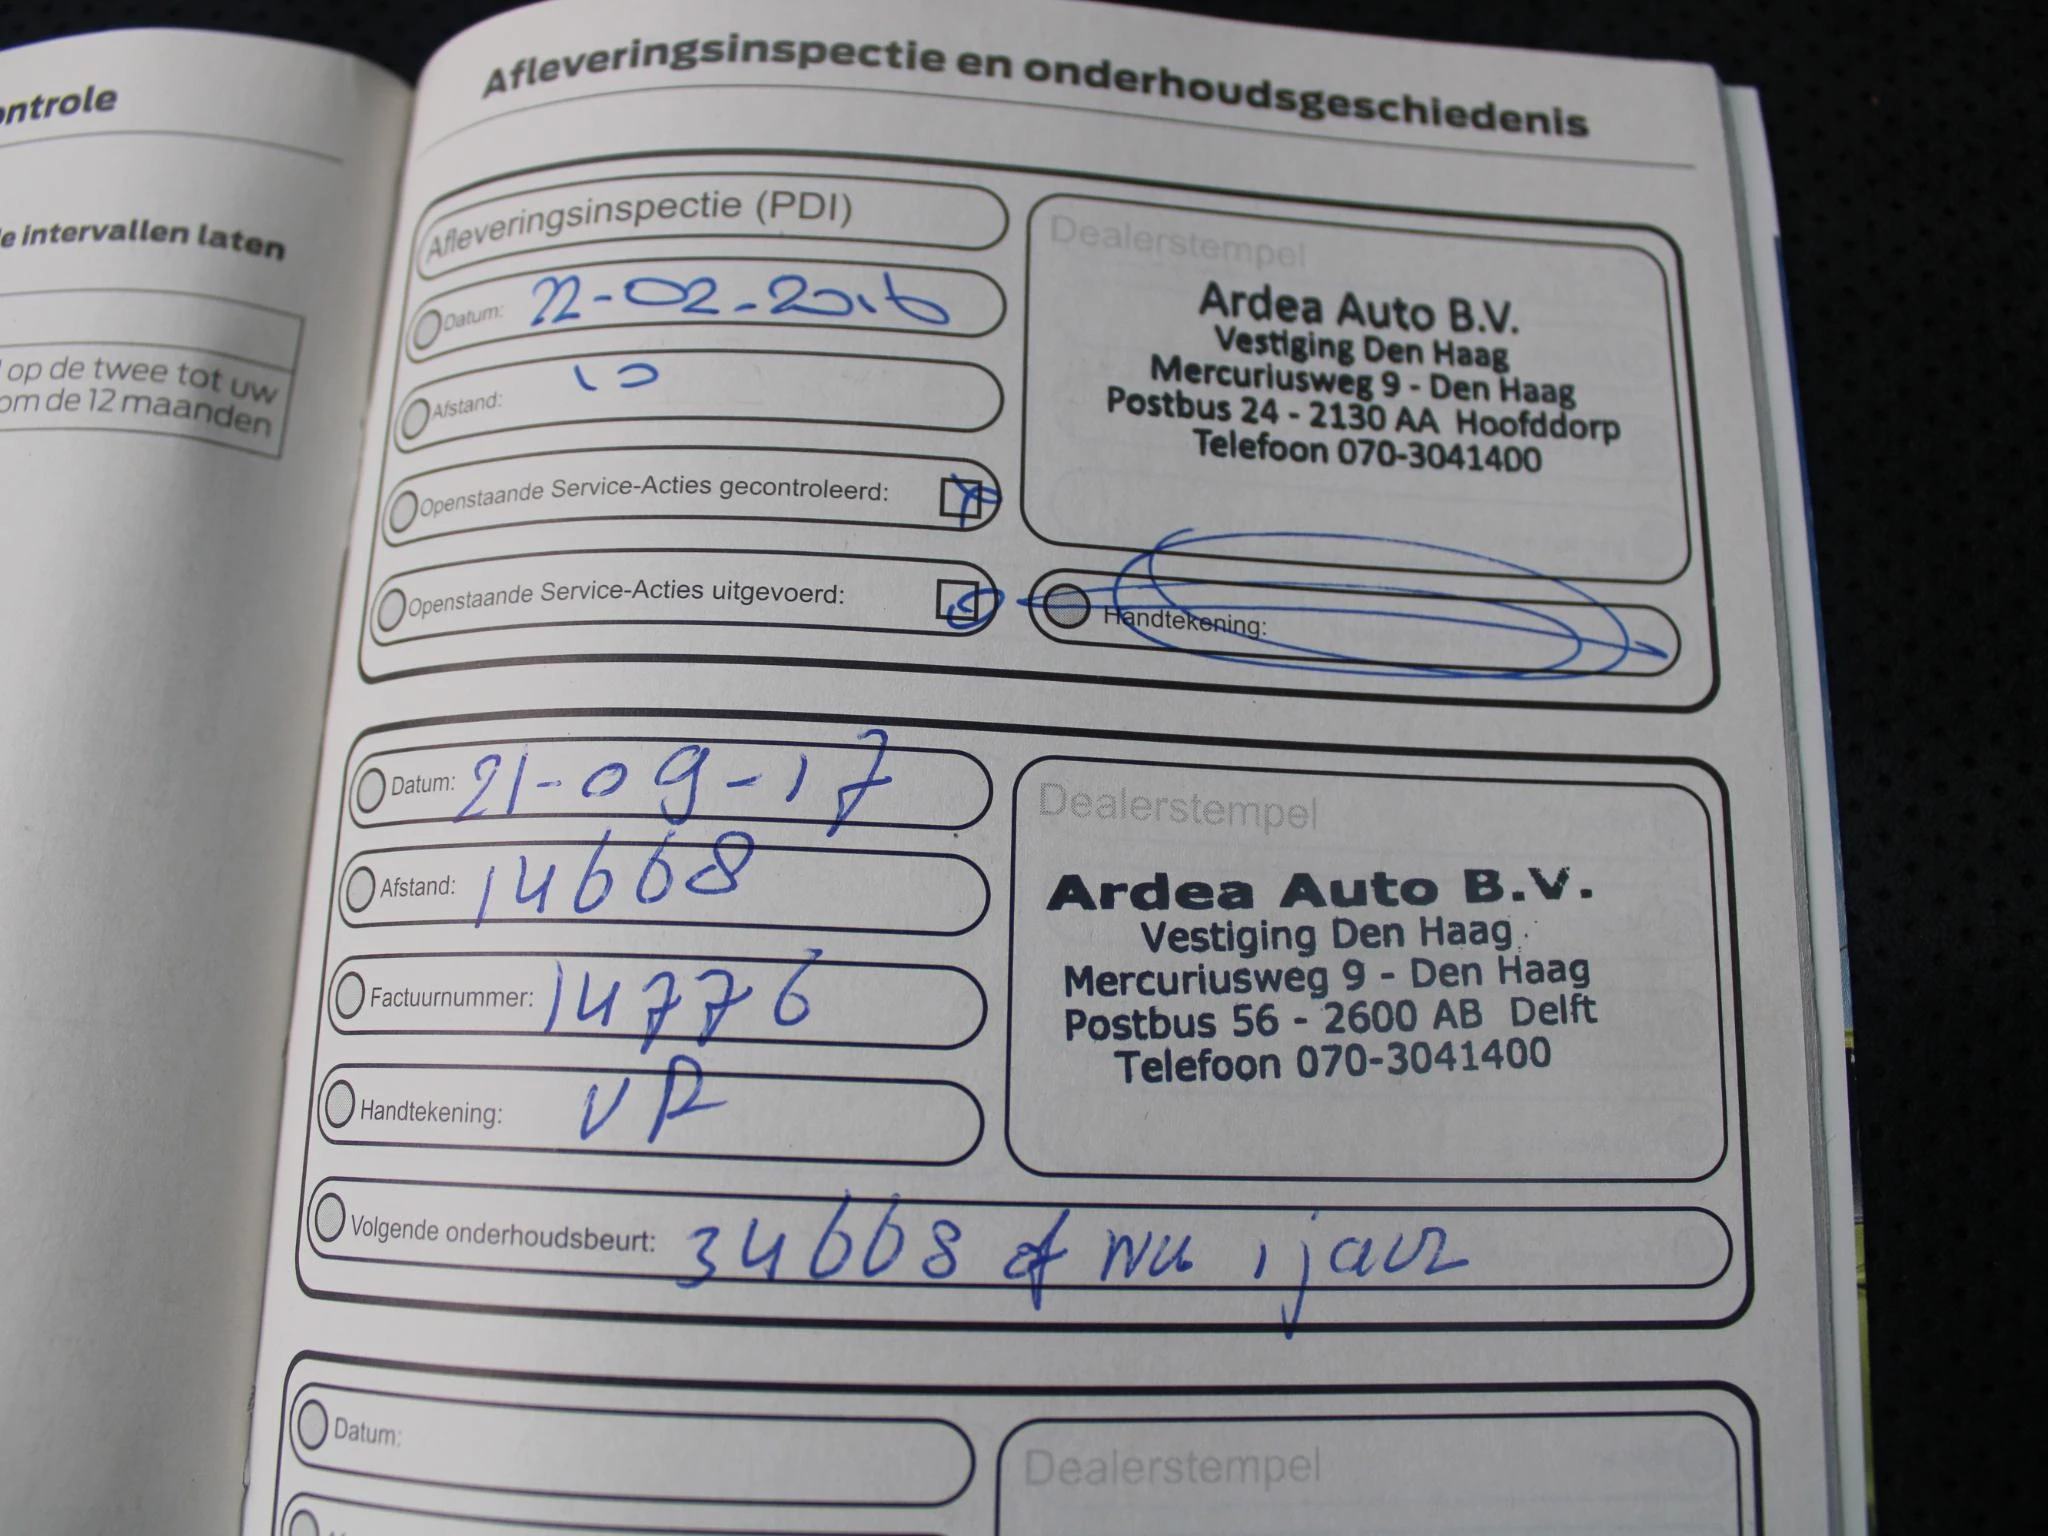 ontrole
e intervallen laten
op de twee tot uw
om de 12 maanden
Afleveringsinspectie en onderhoudsgeschiedenis
Afleveringsinspectie (PDI)
Datum: 22-02-2016
Afstand: 10
Openstaande Service-Acties gecontroleerd:
Openstaande Service-Acties uitgevoerd:
Dealerstempel
Ardea Auto B.V.
Vestiging Den Haag
Mercuriusweg 9 - Den Haag
Postbus 24 - 2130 AA Hoofddorp
Telefoon 070-3041400
Handtekening:
Datum: 21-09-17
Afstand: 14668
Factuurnummer: 14776
Handtekening: VR
Dealerstempel
Ardea Auto B.V.
Vestiging Den Haag
Mercuriusweg 9 - Den Haag
Postbus 56 - 2600 AB Delft
Telefoon 070-3041400
Volgende onderhoudsbeurt: 34668 of nu 1 jaar
Datum:
Dealerstempel